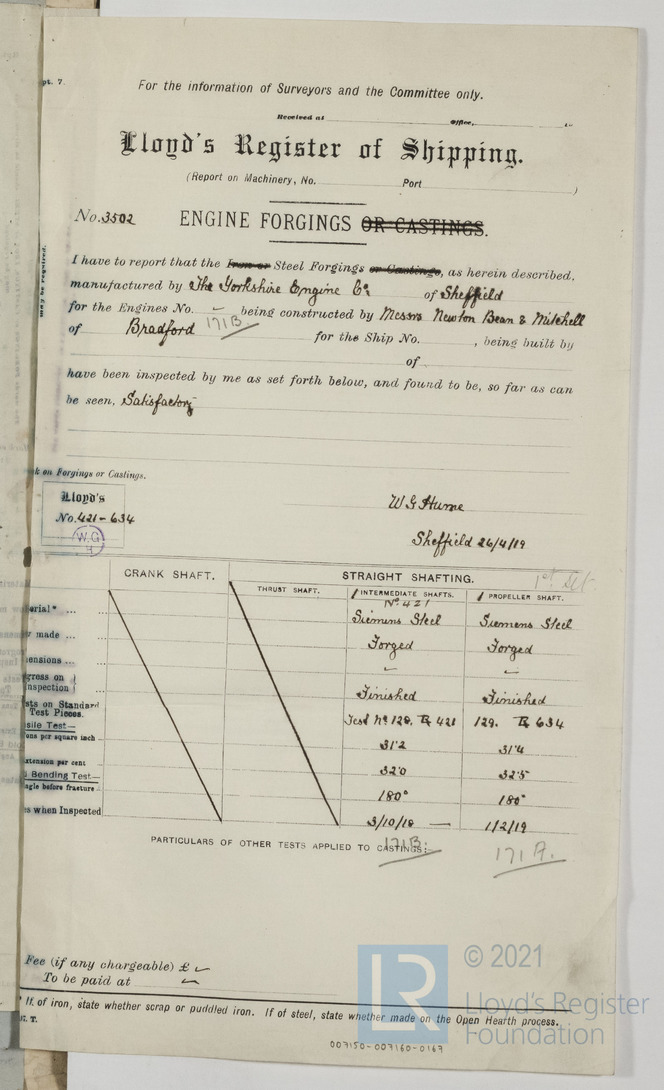 pt. 7.
For the information of Surveyors and the Committee only.
Received at Office,
Lloyd's Register of Shipping.
(Report on Machinery, No. Port )
No. 3502 ENGINE FORGINGS OR CASTINGS.
may be required.
I have to report that the Iron or Steel Forgings or Castings, as herein described,
manufactured by The Yorkshire Engine Co. of Sheffield
for the Engines No. being constructed by Messrs Newton Bean & Mitchell
of Bradford 171B. for the Ship No. , being built by
of
have been inspected by me as set forth below, and found to be, so far as can
be seen, Satisfactory
k on Forgings or Castings.
Lloyd's
No. 421-634
W.G
H
W G Hume
Sheffield 26/4/19
CRANK SHAFT. STRAIGHT SHAFTING. 1st Set.
THRUST SHAFT. 1 INTERMEDIATE SHAFTS. 1 PROPELLER SHAFT.
No 421
erial* ... Siemens Steel Siemens Steel
w made ... Forged Forged
ensions ...
gress on
nspection Finished Finished
sts on Standard
Test Pieces. Test No 128. 421 129. 634
sile Test—
ons per square inch 31.2 31.4
xtension per cent 32.0 32.5
Bending Test—
ngle before fracture 180° 180°
s when Inspected 3/10/18 — 1/2/19
PARTICULARS OF OTHER TESTS APPLIED TO CASTINGS:—
171B. 171A.
Fee (if any chargeable) £
To be paid at
* If of iron, state whether scrap or puddled iron. If of steel, state whether made on the Open Hearth process.
T.
007150-007160-0167
LR
© 2021
Lloyd's Register
Foundation